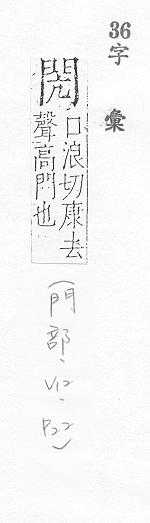 36
字彙
閌
口浪切康去
聲高門也
(門部、V12、P22)